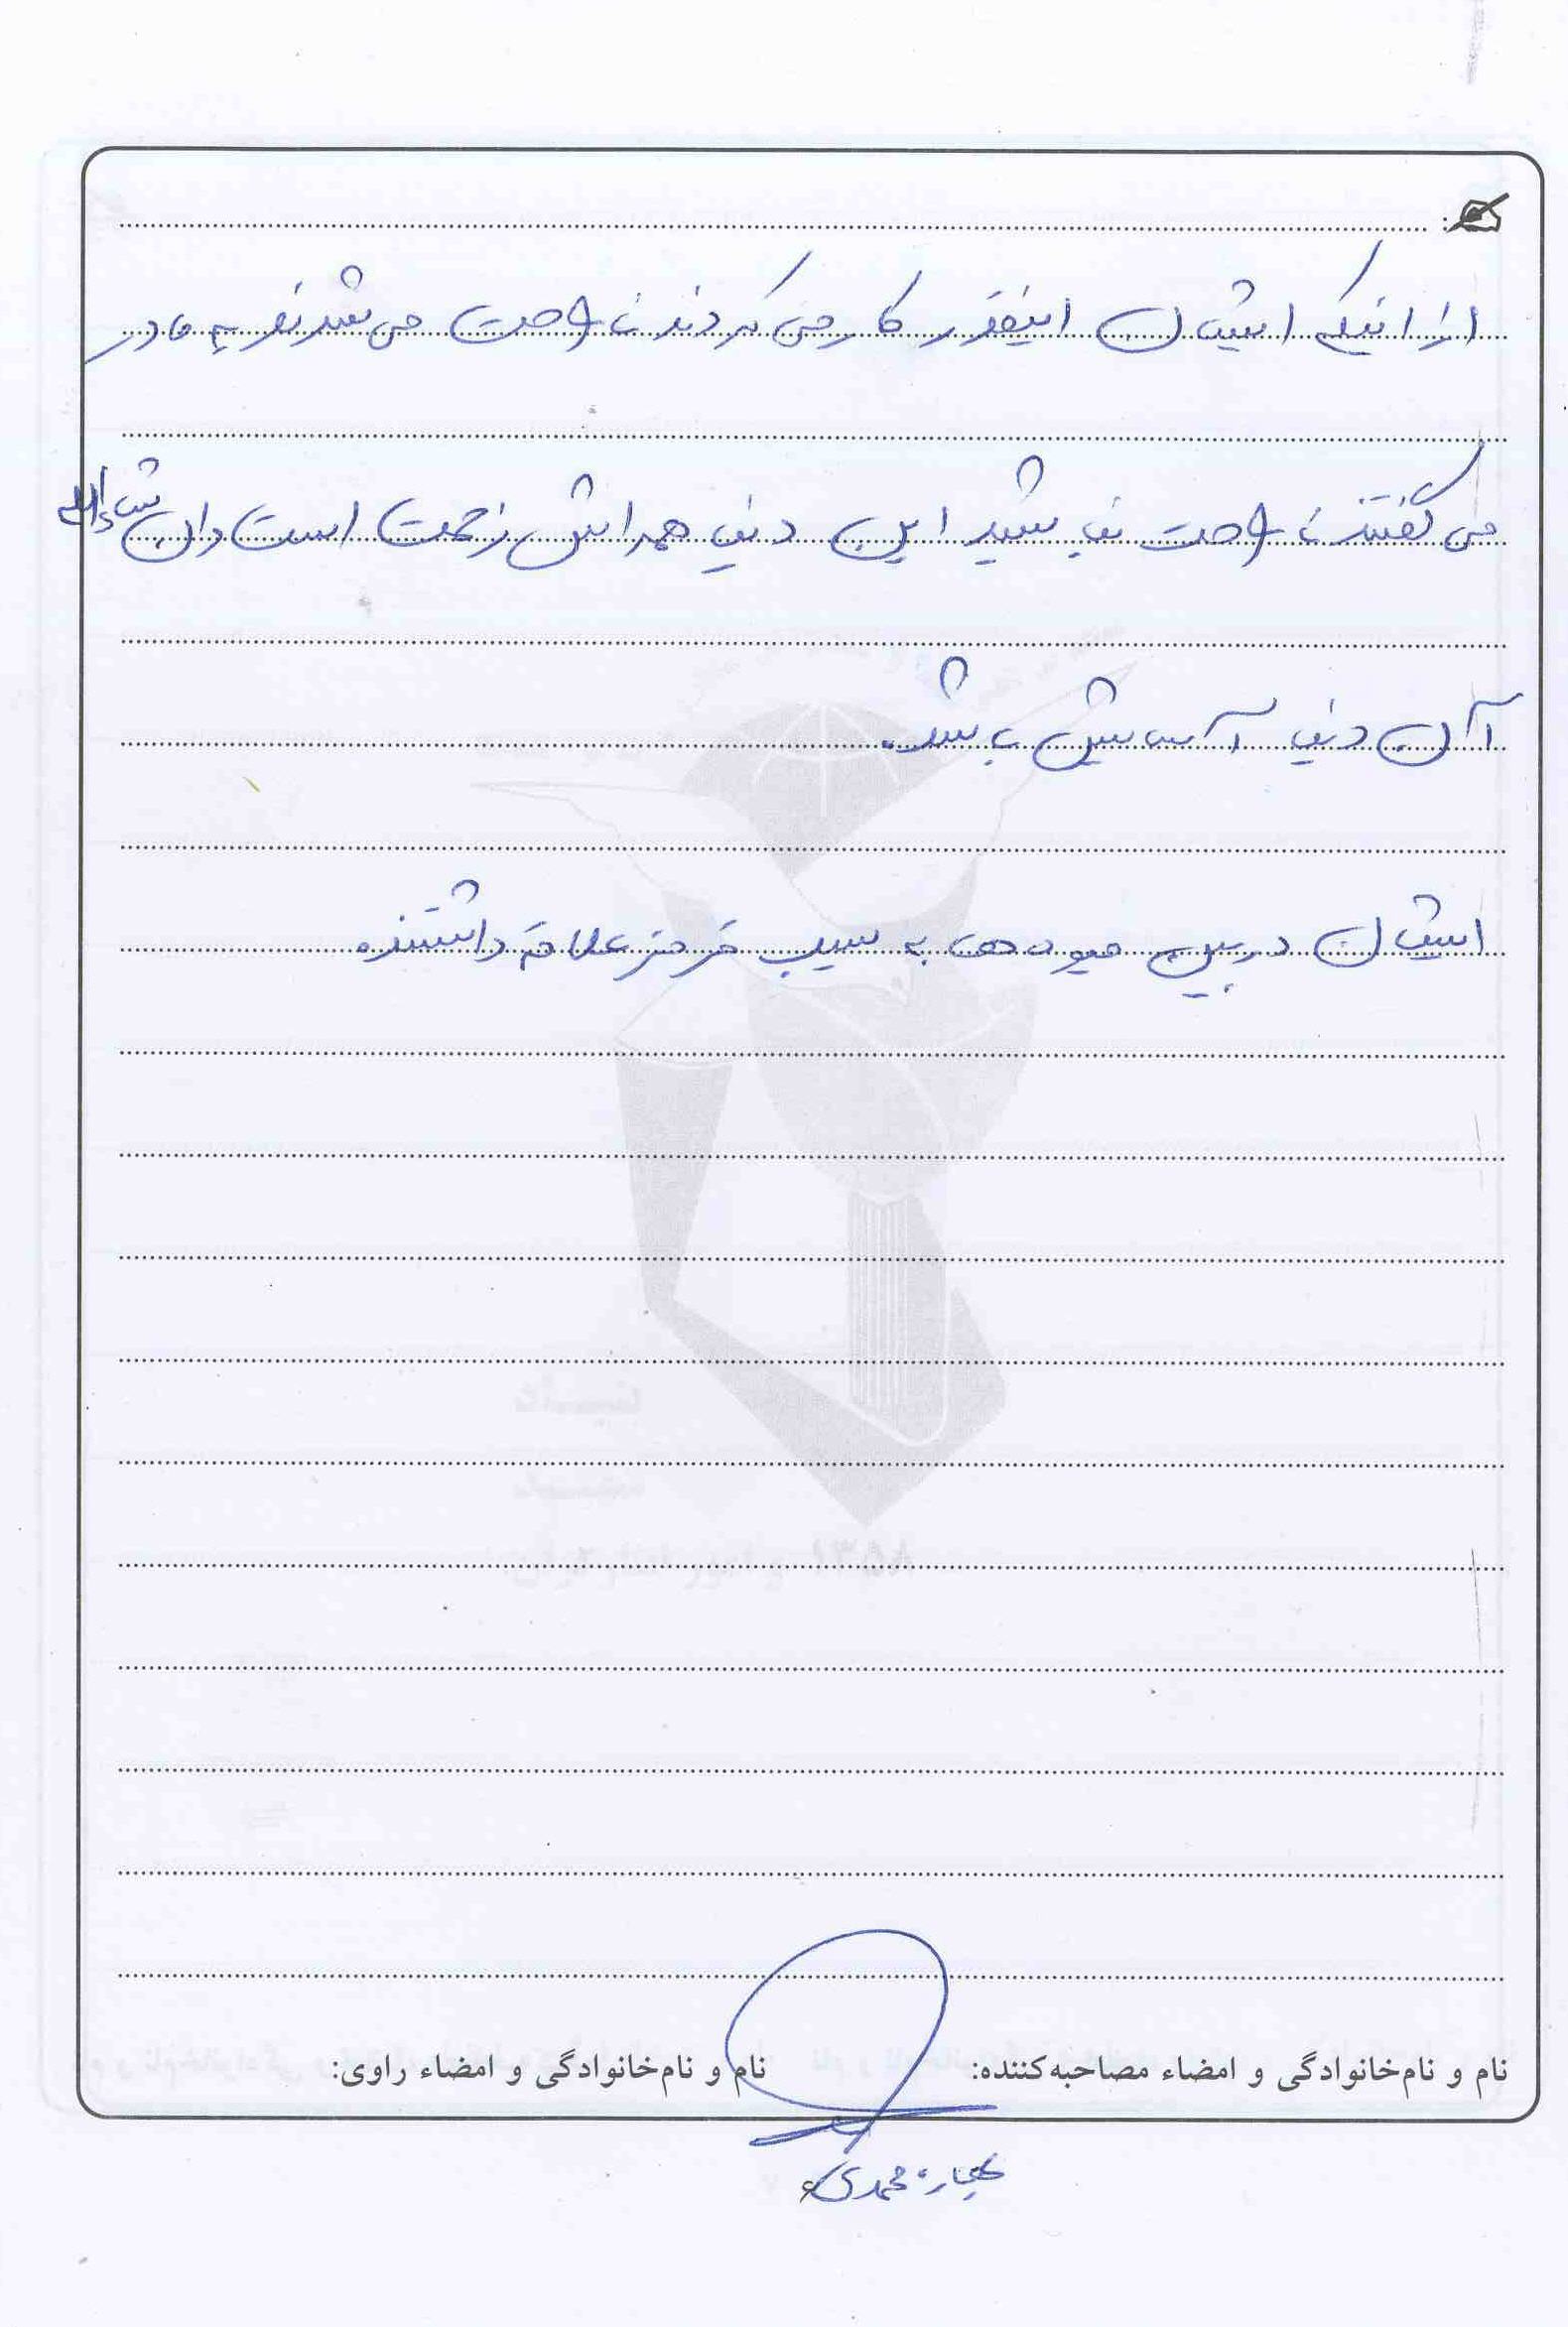 از اینکه ایشان اینقدر کار می کردند ناراحت می شدند و به مادر
می گفتند ناراحت نباشید این دنیا همه اش زحمت است و ان شاءالله
آن دنیا آسایش باشد.
ایشان در بین میوه ها به سیب قرمز علاقه داشتند.
نام و نام‌خانوادگی و امضاء مصاحبه‌کننده: نام و نام‌خانوادگی و امضاء راوی:
محمدی